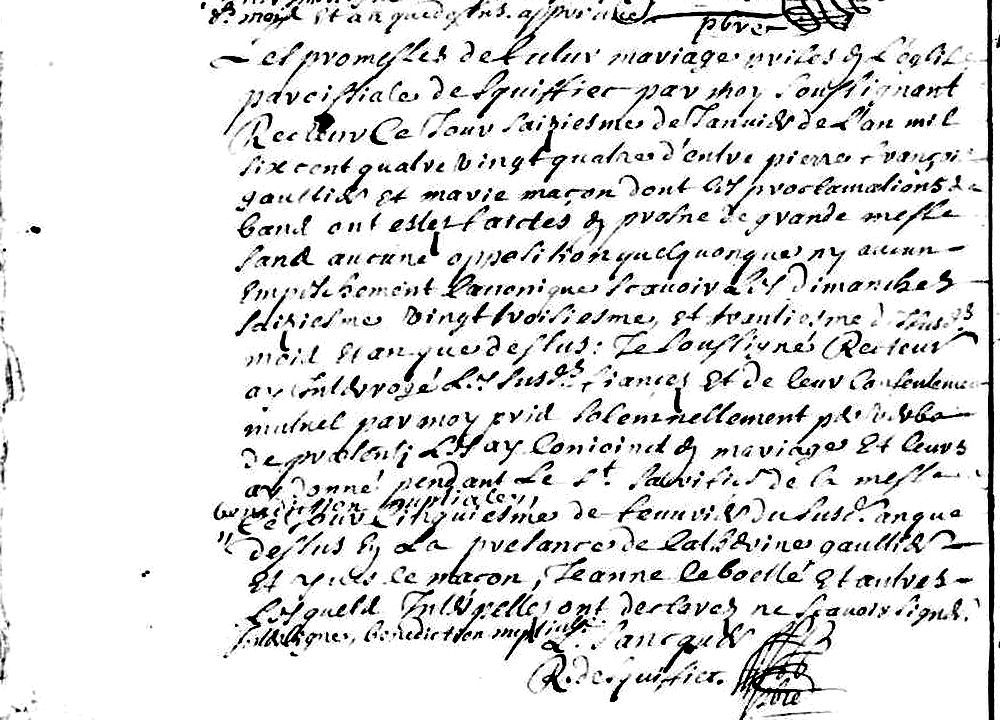 moys Et an que dessus. approuvé
pbre
Les promesses de futur mariage prises en L'église
paroissiale de Squiffiec par moy soussignant
Recteur Ce Jour saiziesme de Janvier de L'an mil
six cent quatre vingt quatre d'entre pierre françois
gaultier Et marie maçon dont les proclamations de
band ont estez faictes en prosne de grande messe
sand aucune opposition quelquonque ny aucun
Empeschement Canonique scavoir Les Dimanches
saiziesme vingt troisiesme, et trantiesme dessusds
mois Et an que dessus: Je soussigné Recteur
ay Interrogé Les susds. fiances Et de leur Consentement
mutuel par moy prid solemnellement per verba
de præsenti Les ay Conioind en mariage Et leurs
ay donné pendant Le St. sacrifice de la messe
benediction nuptiale
Ce Jour Cinquiesme de febvrier du susd. an que
dessus En La presance de Catherine gaultier
Et le maçon, Jeanne leboetté Et autres
Lesqueld Interpellez ont declarez ne scavoir signer
Interligne, benediction nuptiale
L. Jancquer
R. de Squiffiec. pbre